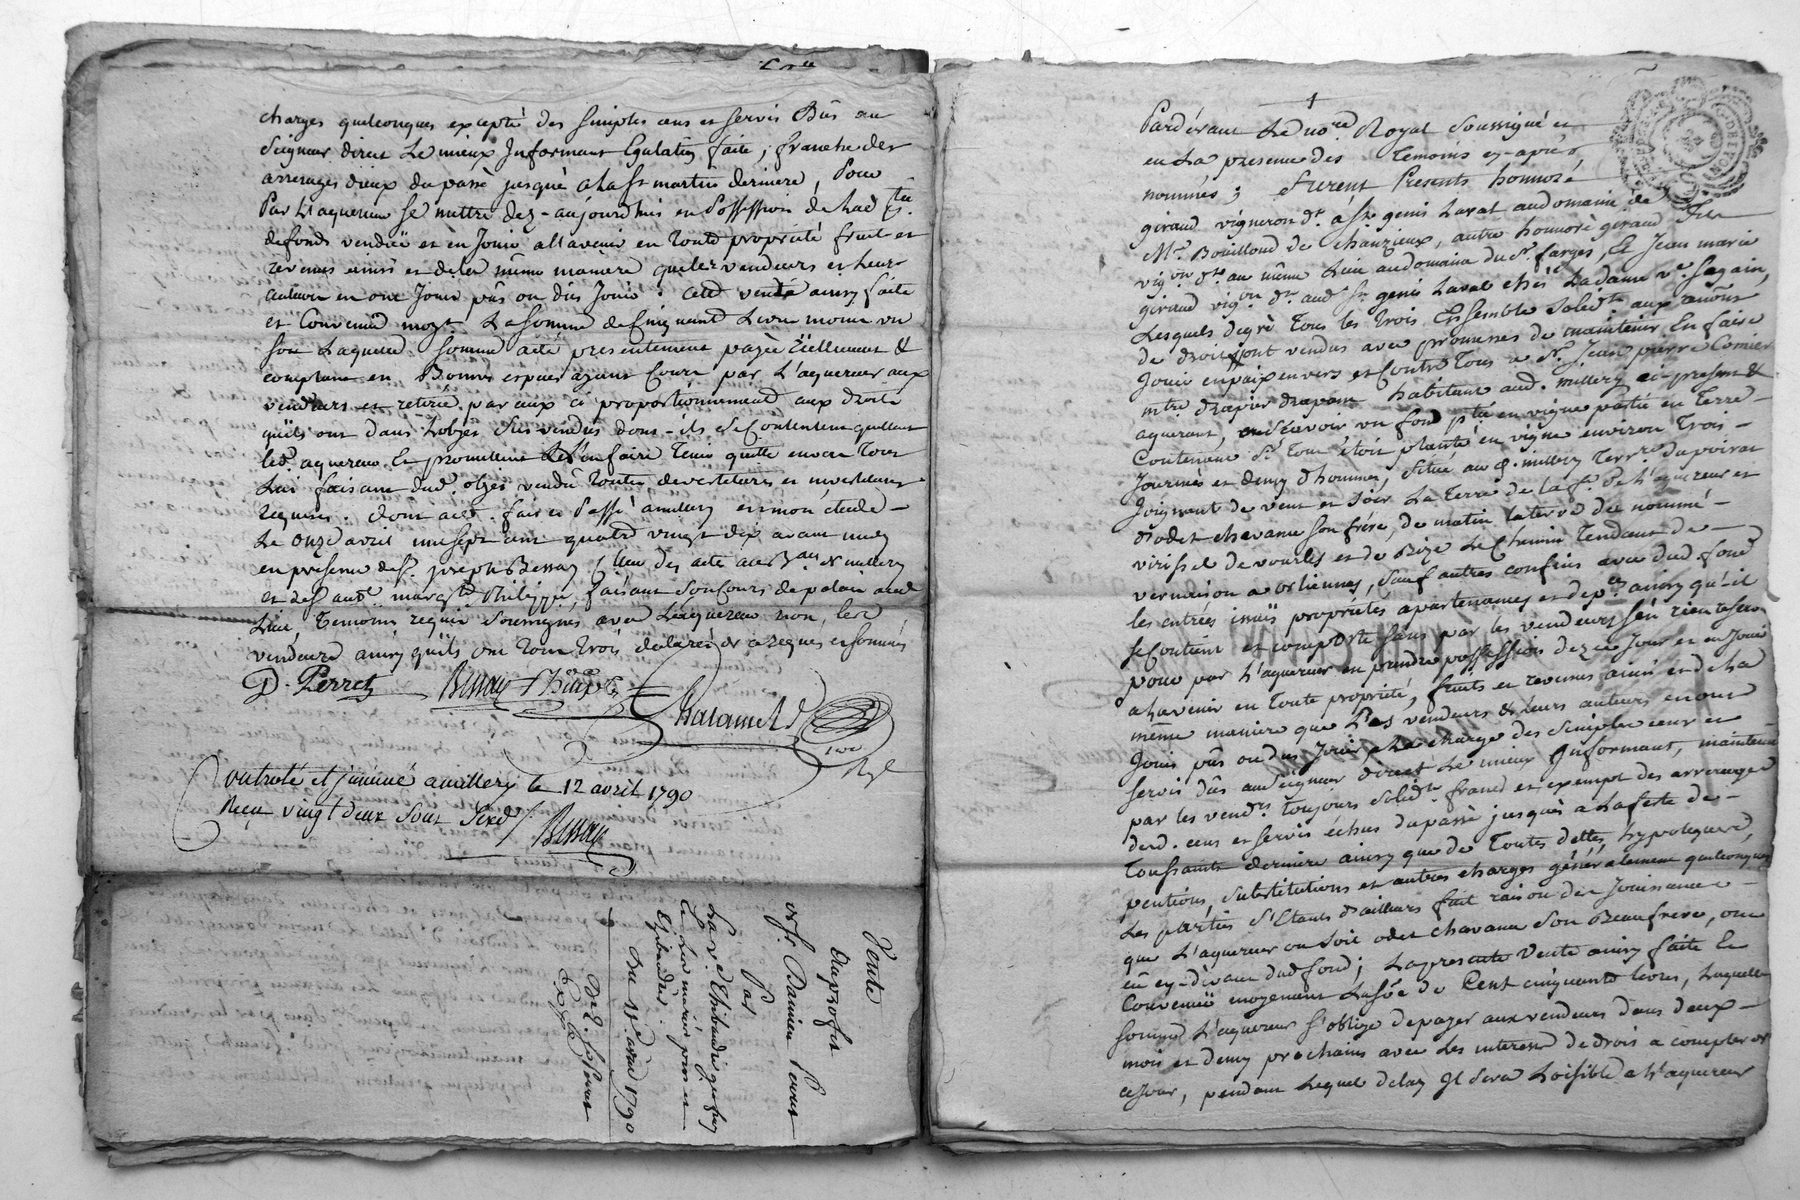 charges quelconques excepté des simples cens et servis Dûs au
Seigneur direct Le mieux Informant Egalation faite, franche des
arrerages dieux du passé jusquè a La St martin derniere, Pour
Par L'aquereur se mettre dez-aujourdhuis en Possession de Lad
de fonds vendüe et en Jouir alavenir en toute propriété fruit et
revenus ainsi et de la même maniere que les vendeurs et leurs
auteurs en ont Jouis pûs ou dûs Jouir : cette vente ainsy faite
et Convenüe moyt La somme de Cinquante Livres
Laquelle somme a été presentement payée réellement &
comptant en Bonnes especes ayant Cours par L'aquereur aux
vendeurs et retirée par eux a proportionnement aux droits
qu'ils ont dans L'objet sus-vendus dont-ils se Contentent quittent
led. aquereur Et promettent de L'en faire Tenir quitte envers Tous
Lui faisant dud. objet vendû Toutes devestitures et investitures
requises. dont acte. fait et Passé a millery en mon étude
Le onze avril mil sept cent quatre vingt dix avant midy
en presence de Sr. joseph Bessay
et de Sr marg Philippe, faisant son Cours de palais aud.
Lieu, Temoins requis soussignés avec L'acquereur non les
vendeurs ainsy qu'ils ont Tous Trois déclarés de ce requis et sommés
D. Perret Bessay Philippe
Thalamel
not
Ryl
Controlé et insinué a millery le 12 avril 1790
Reçu vingt deux sous Six d / Bessay
Vente
du profit
Sr. Damien Perret
Par
La ve. Thibaudier
Ledr marié pour
Du 11e. avril 1790
1
Pardevant Le nore Royal soussigné et
en La presence des Temoins cy-après
nommés ; Furent Presents honnoré
giraud vigneron dt à St genis Laval au domaine de
Mr. Bouilloud de Chanzieux, autre honnoré giraud
vigon dt au même Lieu au domaine du Sr. farges, Et Jean marie
giraud vigon dt aud. St genis Laval chès La dame ve. Sagain,
Lesquels de gré Tous les trois Ensemble solidt aux renonts
de droit, ont vendus avec promesses de maintenir En faire
Jouir en paix envers et Contre Tous a Sr. Jean pierre Comier
mtre drapier drapant habitant aud. millery ici present &
aquerant, a sçavoir un fond pte en vigne partie en Terre
Contenant s'il Tout étoit planté en vigne environ Trois
Journées et demy d'hommes, situé au d. millery Terrre du poirat
Joignant de vent et soir La Terre de La Sr. de L'aquereur et
odet chavane son frère, de matin la terre du nommé
virissel de vourles et de Bize Le Chemin Tendant de
vernaison a orlienas, sauf autres confins avec dud. fond
les entrées issuës proprietés apartenances et dep.ces ainsy qu'il
se Contient et comporte sans par les vendeurs s'en rien reserver
pour par L'aquereur en prendre possession dez ce Jour et en Jouir
alavenir en Toute proprieté, fruits et revenus ainsi et de la
même maniere que Les vendeurs & leurs auteurs en ont
Jouis pûs ou dus Jouir a La charge des simples cens et
servis dûs aud Seigneur direct Le mieux Informant, maintenu
par les vend.rs toujours solidt. franc et exempt des arrerages
desd. cens et servis échus du passé jusqu'à a La feste de
Toussaints derniere ainsy que de Toutes dettes, hypoteques,
pentions, substitutions et autres charges généralement quelconques
Les parties s'Etants d'ailleurs fait raison de Jouissance
que L'aquereur ou soit odet chavane son Beaufrere, ont
eû cy-devant dud fond ; La presente vente ainsy faite Et
Convenuë moyenant La sôe de Cent cinquante Livres, Laquelle
somme L'aquereur s'oblige de payer aux vendeurs dans deux
mois et demy prochains avec Les interest de droit a compter de
ce Jour, pendant Lequel delay Il sera Loisible a L'aquereur